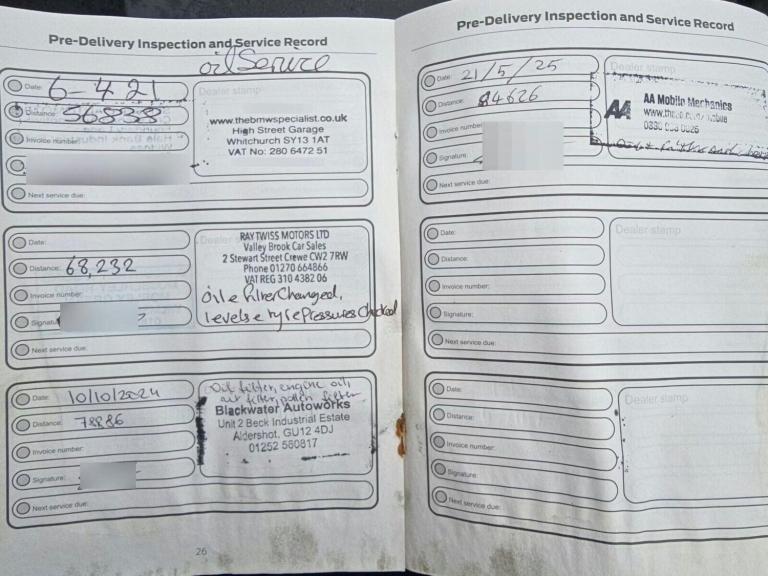 Pre-Delivery Inspection and Service Record
oil Service
Date: 6-4 21
Distance: 56838
Invoice number:
Next service due:
Dealer stamp
www.thebmwspecialist.co.uk
High Street Garage
Whitchurch SY13 1AT
VAT No: 280 6472 51
Date:
Distance: 68,232
Invoice number:
Signatu
Next service due:
Dealer
RAY TWISS MOTORS LTD
Valley Brook Car Sales
2 Stewart Street Crewe CW2 7RW
Phone 01270 664866
VAT REG 310 4382 06
Oil e filter Changed,
levels e tyre Pressures Checked
Date: 10/10/2024
Distance: 78886
Invoice number:
Signature:
Next service due:
Oil filter, engine oil,
air filter, pollen filter
Blackwater Autoworks
Unit 2 Beck Industrial Estate
Aldershot, GU12 4DJ
01252 560817
26
Pre-Delivery Inspection and Service Record
Date: 21/5/25
Distance: 84626
Invoice number:
Signature:
Next service due:
Dealer stamp
AA
AA Mobile Mechanics
Date:
Distance:
Invoice number:
Signature:
Next service due:
Dealer stamp
Date:
Distance:
Invoice number:
Signature:
Next service due:
Dealer stamp